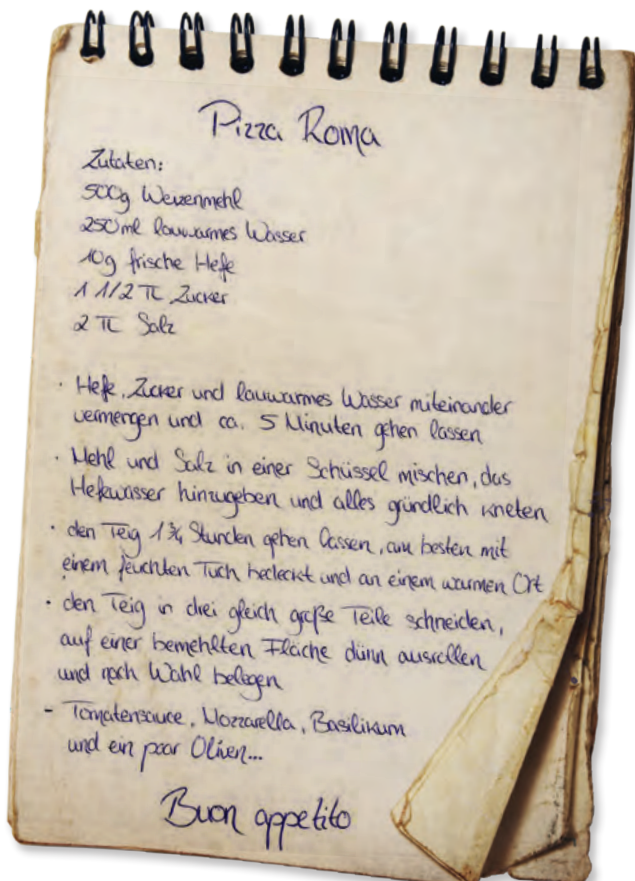 Pizza Roma
Zutaten:
500g Weizenmehl
250ml lauwarmes Wasser
10g frische Hefe
1 1/2 TL Zucker
2 TL Salz
· Hefe, Zucker und lauwarmes Wasser miteinander
vermengen und ca. 5 Minuten gehen lassen
· Mehl und Salz in einer Schüssel mischen, das
Hefewasser hinzugeben und alles gründlich kneten
· den Teig 1 ¾ Stunden gehen lassen, am besten mit
einem feuchten Tuch bedeckt und an einem warmen Ort
· den Teig in drei gleich große Teile schneiden,
auf einer bemehlten Fläche dünn ausrollen
und nach Wahl belegen
- Tomatensauce, Mozzarella, Basilikum
und ein paar Oliven...
Buon appetito